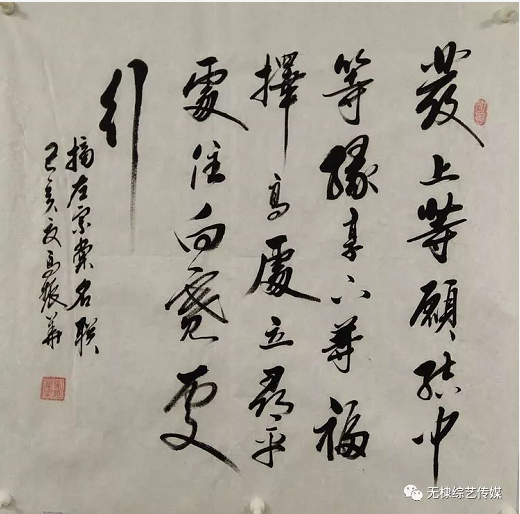 發上等願結中
等緣享下等福
擇高處立尋平
處住向寬處
行
摘左宗棠名联
己亥夏高振華
无棣综艺传媒